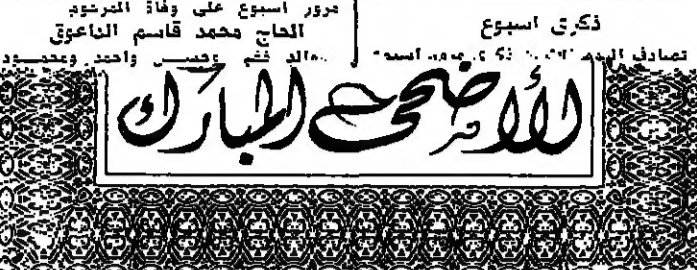 ذكرى اسبوع
تصادف اليوم ذكرى مرور اسبوع
مرور اسبوع على وفاة المرحوم
الحاج محمد قاسم
والد واحمد
الأضحى المبارك